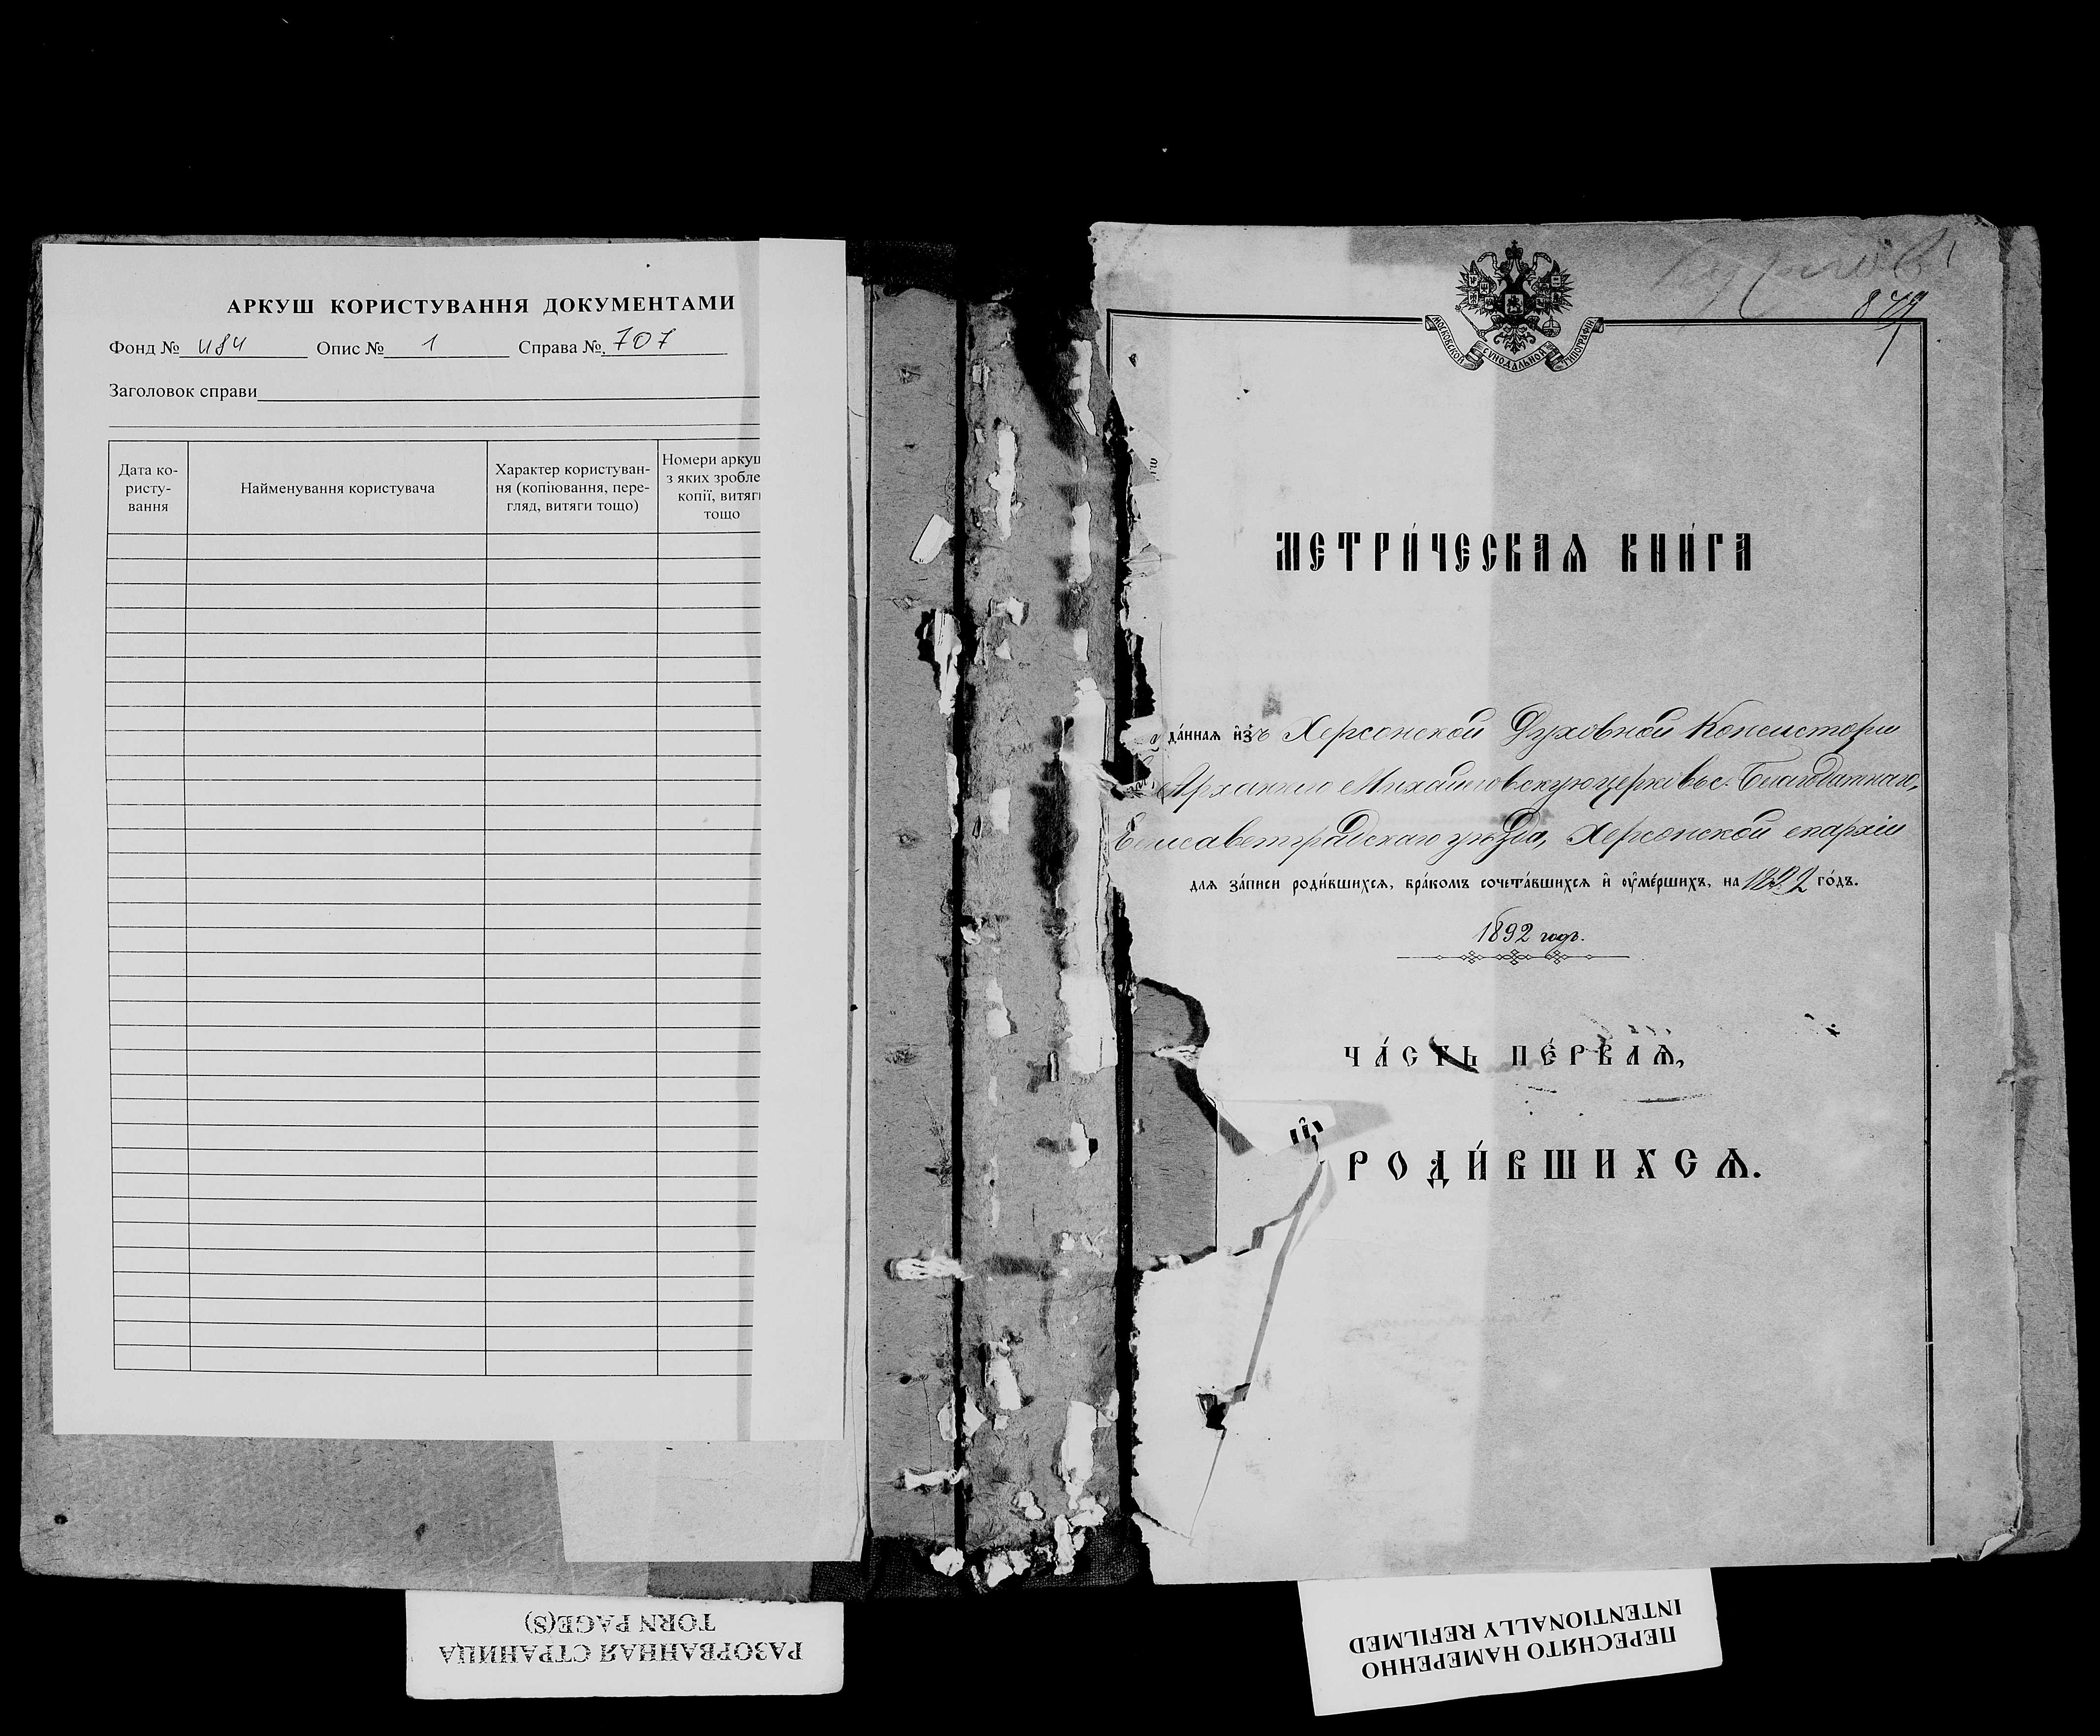 АРКУШ КОРИСТУВАННЯ ДОКУМЕНТАМИ
Фонд № 484 Опис № 1 Справа № 707
Заголовок справи
Дата ко-
ристу-
вання
Найменування користувача
Характер користуван-
ня (копіювання, пере-
гляд, витяги тощо)
Номери аркуш
з яких зробле
копії, витяги
тощо
РАЗОРВАННАЯ СТРАНИЦА
TORN PAGE(S)
МОСКОВСКОЙ СѴНОДАЛЬНОЙ ТИПОГРАФІИ
МЕТРИ́ЧЕСКАѦ КНИ́ГА
да́ннаѧ и҆зъ Херсонской Духовной Консисторіи
Архангело Михайловскую церковь с. Благодатнаго,
Елисаветградскаго уѣзда, Херсонской епархіи
длѧ за́писи роди́вшихсѧ, бра́комъ сочета́вшихсѧ и҆ ѹ҆ме́ршихъ, на 1892 го́дъ.
1892 годъ.
ЧА́СТЬ ПЕ́РВАѦ,
РОДИ́ВШИХСѦ.
ПЕРЕСНЯТО НАМЕРЕННО
INTENTIONALLY REFILMED